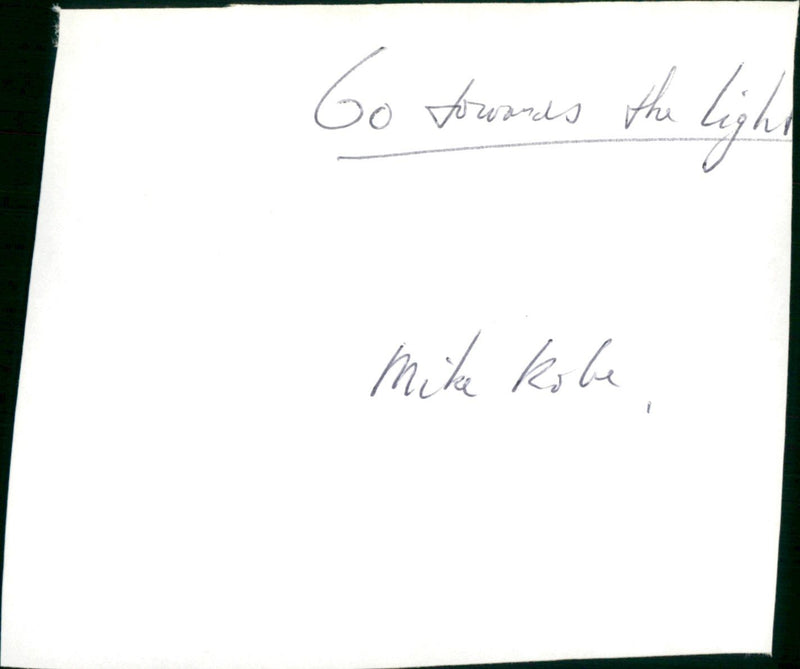 Go towards the light
Mike Kobe.